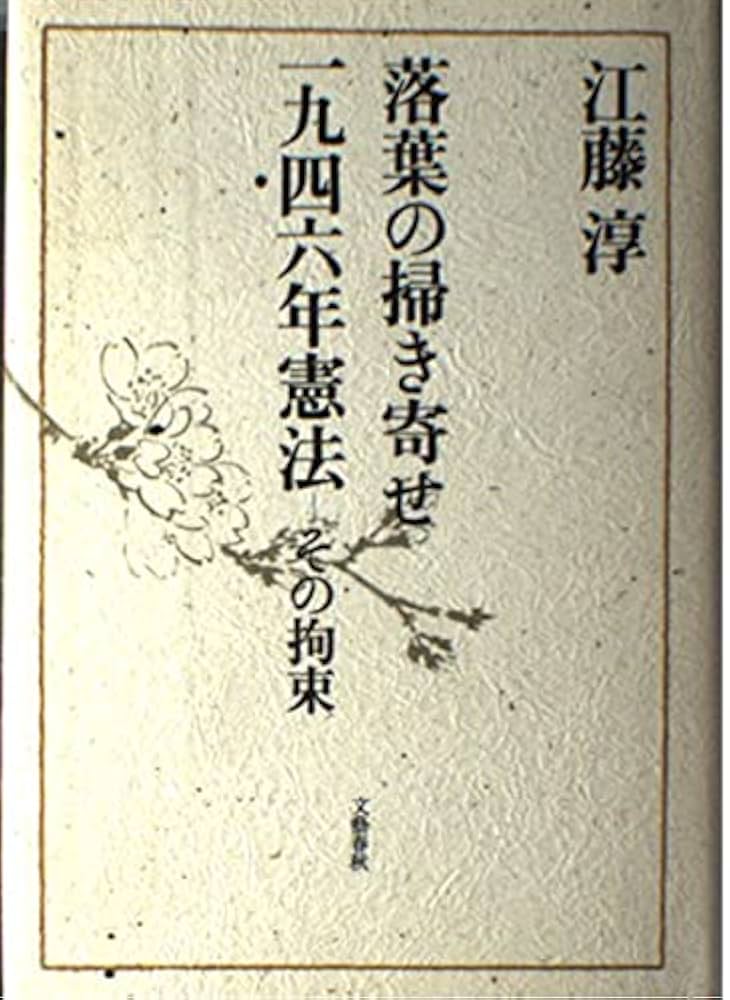 江藤 淳
落葉の掃き寄せ
一九四六年憲法―その拘束
文藝春秋